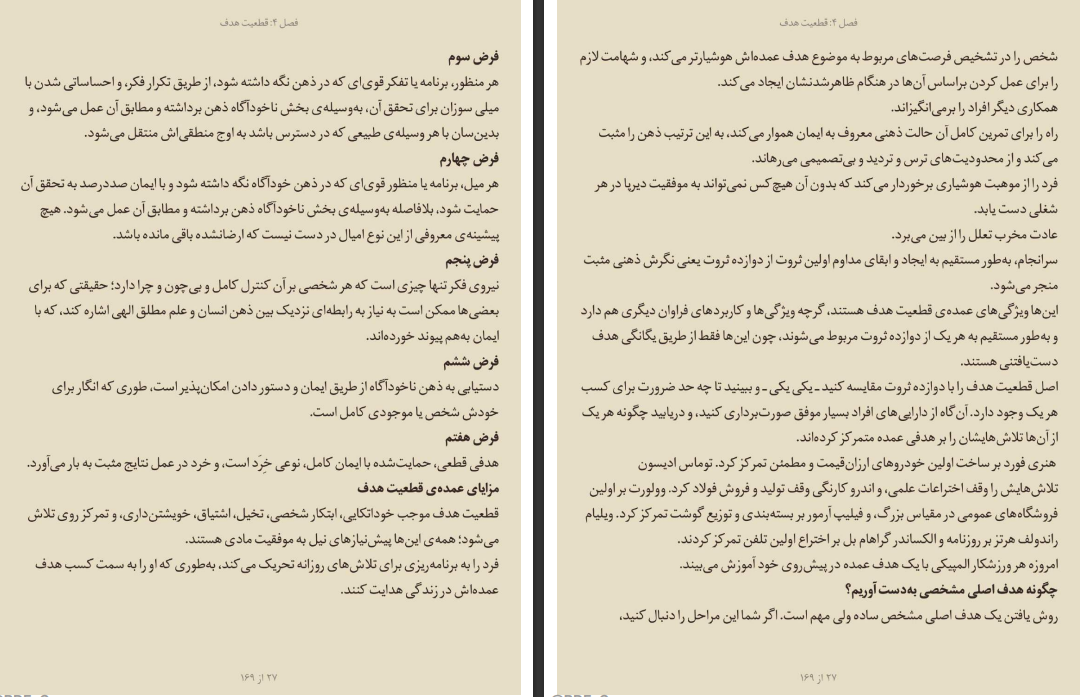 فصل ۴: قطعیت هدف
فرض سوم
هر منظور، برنامه یا تفکر قوی‌ای که در ذهن نگه داشته شود، از طریق تکرار فکر، و احساساتی شدن با
میلی سوزان برای تحقق آن، به‌وسیله‌ی بخش ناخودآگاه ذهن برداشته و مطابق آن عمل می‌شود، و
بدین‌سان با هر وسیله‌ی طبیعی که در دسترس باشد به اوج منطقی‌اش منتقل می‌شود.
فرض چهارم
هر میل، برنامه یا منظور قوی‌ای که در ذهن خودآگاه نگه داشته شود و با ایمان صددرصد به تحقق آن
حمایت شود، بلافاصله به‌وسیله‌ی بخش ناخودآگاه ذهن برداشته و مطابق آن عمل می‌شود. هیچ
پیشینه‌ی معروفی از این نوع امیال در دست نیست که ارضانشده باقی مانده باشد.
فرض پنجم
نیروی فکر تنها چیزی است که هر شخصی بر آن کنترل کامل و بی‌چون و چرا دارد؛ حقیقتی که برای
بعضی‌ها ممکن است به نیاز به رابطه‌ای نزدیک بین ذهن انسان و علم مطلق الهی اشاره کند، که با
ایمان به‌هم پیوند خورده‌اند.
فرض ششم
دستیابی به ذهن ناخودآگاه از طریق ایمان و دستور دادن امکان‌پذیر است، طوری که انگار برای
خودش شخص یا موجودی کامل است.
فرض هفتم
هدفی قطعی، حمایت‌شده با ایمان کامل، نوعی خِرَد است، و خرد در عمل نتایج مثبت به بار می‌آورد.
مزایای عمده‌ی قطعیت هدف
قطعیت هدف موجب خوداتکایی، ابتکار شخصی، تخیل، اشتیاق، خویشتن‌داری، و تمرکز روی تلاش
می‌شود؛ همه‌ی این‌ها پیش‌نیازهای نیل به موفقیت مادی هستند.
فرد را به برنامه‌ریزی برای تلاش‌های روزانه تحریک می‌کند، به‌طوری که او را به سمت کسب هدف
عمده‌اش در زندگی هدایت کنند.
۲۷ از ۱۶۹
فصل ۴: قطعیت هدف
شخص را در تشخیص فرصت‌های مربوط به موضوع هدف عمده‌اش هوشیارتر می‌کند، و شهامت لازم
را برای عمل کردن براساس آن‌ها در هنگام ظاهرشدنشان ایجاد می‌کند.
همکاری دیگر افراد را برمی‌انگیزاند.
راه را برای تمرین کامل آن حالت ذهنی معروف به ایمان هموار می‌کند، به این ترتیب ذهن را مثبت
می‌کند و از محدودیت‌های ترس و تردید و بی‌تصمیمی می‌رهاند.
فرد را از موهبت هوشیاری برخوردار می‌کند که بدون آن هیچ‌کس نمی‌تواند به موفقیت دیرپا در هر
شغلی دست یابد.
عادت مخرب تعلل را از بین می‌برد.
سرانجام، به‌طور مستقیم به ایجاد و ابقای مداوم اولین ثروت از دوازده ثروت یعنی نگرش ذهنی مثبت
منجر می‌شود.
این‌ها ویژگی‌های عمده‌ی قطعیت هدف هستند، گرچه ویژگی‌ها و کاربردهای فراوان دیگری هم دارد
و به‌طور مستقیم به هر یک از دوازده ثروت مربوط می‌شوند، چون این‌ها فقط از طریق یگانگی هدف
دست‌یافتنی هستند.
اصل قطعیت هدف را با دوازده ثروت مقایسه کنید ـ یکی یکی ـ و ببینید تا چه حد ضرورت برای کسب
هر یک وجود دارد. آن‌گاه از دارایی‌های افراد بسیار موفق صورت‌برداری کنید، و دریابید چگونه هر یک
از آن‌ها تلاش‌هایشان را بر هدفی عمده متمرکز کرده‌اند.
هنری فورد بر ساخت اولین خودروهای ارزان‌قیمت و مطمئن تمرکز کرد. توماس ادیسون
تلاش‌هایش را وقف اختراعات علمی، و اندرو کارنگی وقف تولید و فروش فولاد کرد. وولورت بر اولین
فروشگاه‌های عمومی در مقیاس بزرگ، و فیلیپ آرمور بر بسته‌بندی و توزیع گوشت تمرکز کرد. ویلیام
راندولف هرتز بر روزنامه و الکساندر گراهام بل بر اختراع اولین تلفن تمرکز کردند.
امروزه هر ورزشکار المپیکی با یک هدف عمده در پیش‌روی خود آموزش می‌بیند.
چگونه هدف اصلی مشخصی به‌دست آوریم؟
روش یافتن یک هدف اصلی مشخص ساده ولی مهم است. اگر شما این مراحل را دنبال کنید،
۲۷ از ۱۶۹